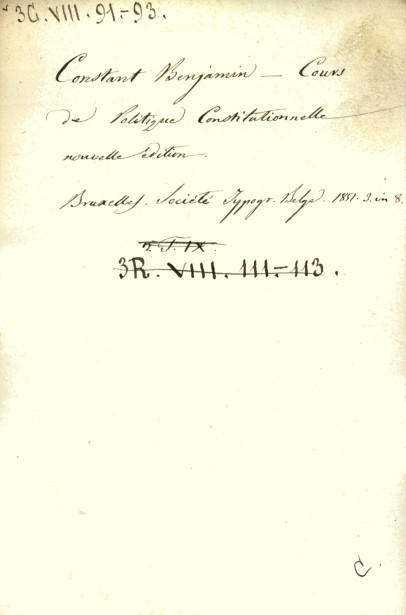 3G.VIII.91-93.
Constant Benjamin — Cours
de Politique Constitutionnelle
nouvelle édition.
Bruxelles. Société Typogr. Belge. 1851. 3. in 8.
2. T. IX.
3R. VIII. 111-113.
C.